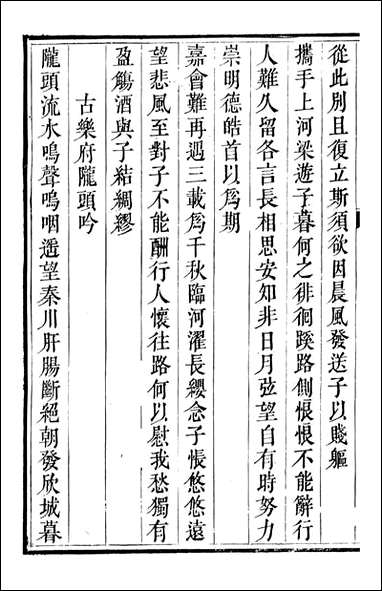 從此別且復立斯須欲因晨風發送子以賤軀
攜手上河梁遊子暮何之徘徊蹊路側悢悢不能辭行
人難久留各言長相思安知非日月弦望自有時努力
崇明德皓首以爲期
嘉會難再遇三載爲千秋臨河濯長纓念子悵悠悠遠
望悲風至對子不能酬行人懷往路何以慰我愁獨有
盈觴酒與子結綢繆
古樂府隴頭吟
隴頭流水鳴聲嗚咽遥望秦川肝腸斷絕朝發欣城暮